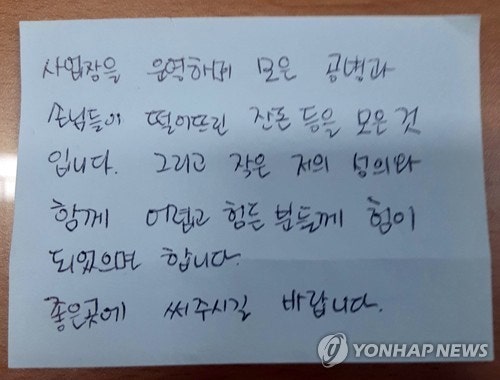 사업장을 운영하며 모은 공병과
손님들이 떨어뜨린 잔돈 등을 모은 것
입니다. 그리고 작은 저의 성의와
함께 어렵고 힘든 분들께 힘이
되었으며 합니다.
좋은곳에 써주시길 바랍니다.
YONHAP NEWS